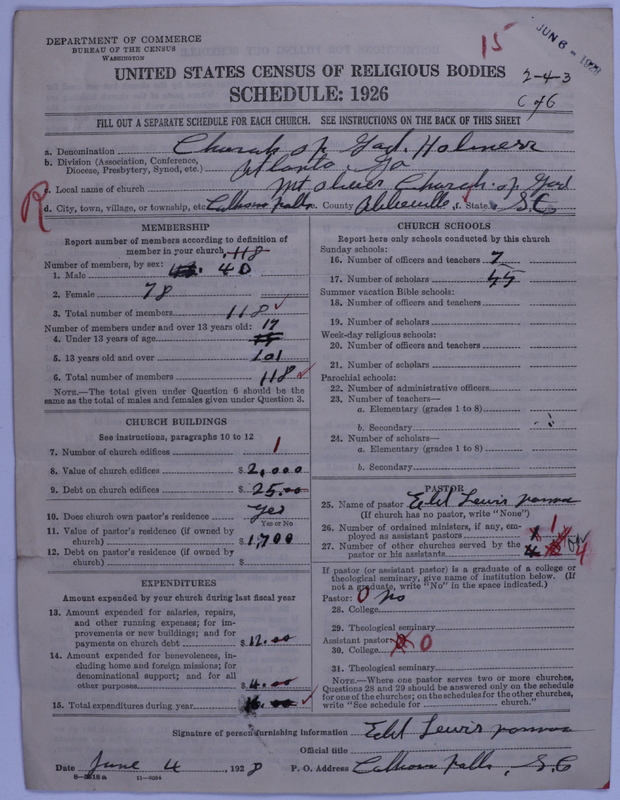 DEPARTMENT OF COMMERCE
BUREAU OF THE CENSUS
WASHINGTON
15
JUN 6 - 1928
UNITED STATES CENSUS OF RELIGIOUS BODIES
2-4-3
SCHEDULE: 1926
C of G
FILL OUT A SEPARATE SCHEDULE FOR EACH CHURCH. SEE INSTRUCTIONS ON THE BACK OF THIS SHEET
a. Denomination Church of God. Holiness
b. Division (Association, Conference, Atlanta Ga
Diocese, Presbytery, Synod, etc.)
c. Local name of church Mt Oliver Church of God
R
d. City, town, village, or township, etc Calhoun Falls e. County Abbeville f. State S.C
MEMBERSHIP
Report number of members according to definition of
member in your church. 118
Number of members, by sex:
1. Male 40
2. Female 78
3. Total number of members 118
Number of members under and over 13 years old: 17
4. Under 13 years of age
5. 13 years old and over 101
6. Total number of members 118
NOTE.—The total given under Question 6 should be the
same as the total of males and females given under Question 3.
CHURCH BUILDINGS
See instructions, paragraphs 10 to 12
7. Number of church edifices 1
8. Value of church edifices $2,000
9. Debt on church edifices $25.00
10. Does church own pastor's residence yes
Yes or No
11. Value of pastor's residence (if owned by
church) $1,700
12. Debt on pastor's residence (if owned by
church) $
EXPENDITURES
Amount expended by your church during last fiscal year
13. Amount expended for salaries, repairs,
and other running expenses; for im-
provements or new buildings; and for
payments on church debt $12.00
14. Amount expended for benevolences, in-
cluding home and foreign missions; for
denominational support; and for all
other purposes $4.00
15. Total expenditures during year 16.00
CHURCH SCHOOLS
Report here only schools conducted by this church
Sunday schools:
16. Number of officers and teachers 7
17. Number of scholars 45
Summer vacation Bible schools:
18. Number of officers and teachers
19. Number of scholars
Week-day religious schools:
20. Number of officers and teachers
21. Number of scholars
Parochial schools:
22. Number of administrative officers
23. Number of teachers—
a. Elementary (grades 1 to 8)
b. Secondary
24. Number of scholars—
a. Elementary (grades 1 to 8)
b. Secondary
PASTOR
25. Name of pastor Lewis
(If church has no pastor, write "None")
26. Number of ordained ministers, if any, em-
ployed as assistant pastors 1
27. Number of other churches served by the
pastor or his assistants 4
If pastor (or assistant pastor) is a graduate of a college or
theological seminary, give name of institution below. (If
not a graduate, write "No" in the space indicated.)
Pastor: 0 no
28. College
29. Theological seminary
Assistant pastor: 0
30. College
31. Theological seminary
NOTE.—Where one pastor serves two or more churches,
Questions 28 and 29 should be answered only on the schedule
for one of the churches; on the schedules for the other churches,
write "See schedule for church."
Signature of person furnishing information Lewis
Official title
Date June 4, 1928 P. O. Address Calhoun Falls, S.C
8-5518a 11-9094